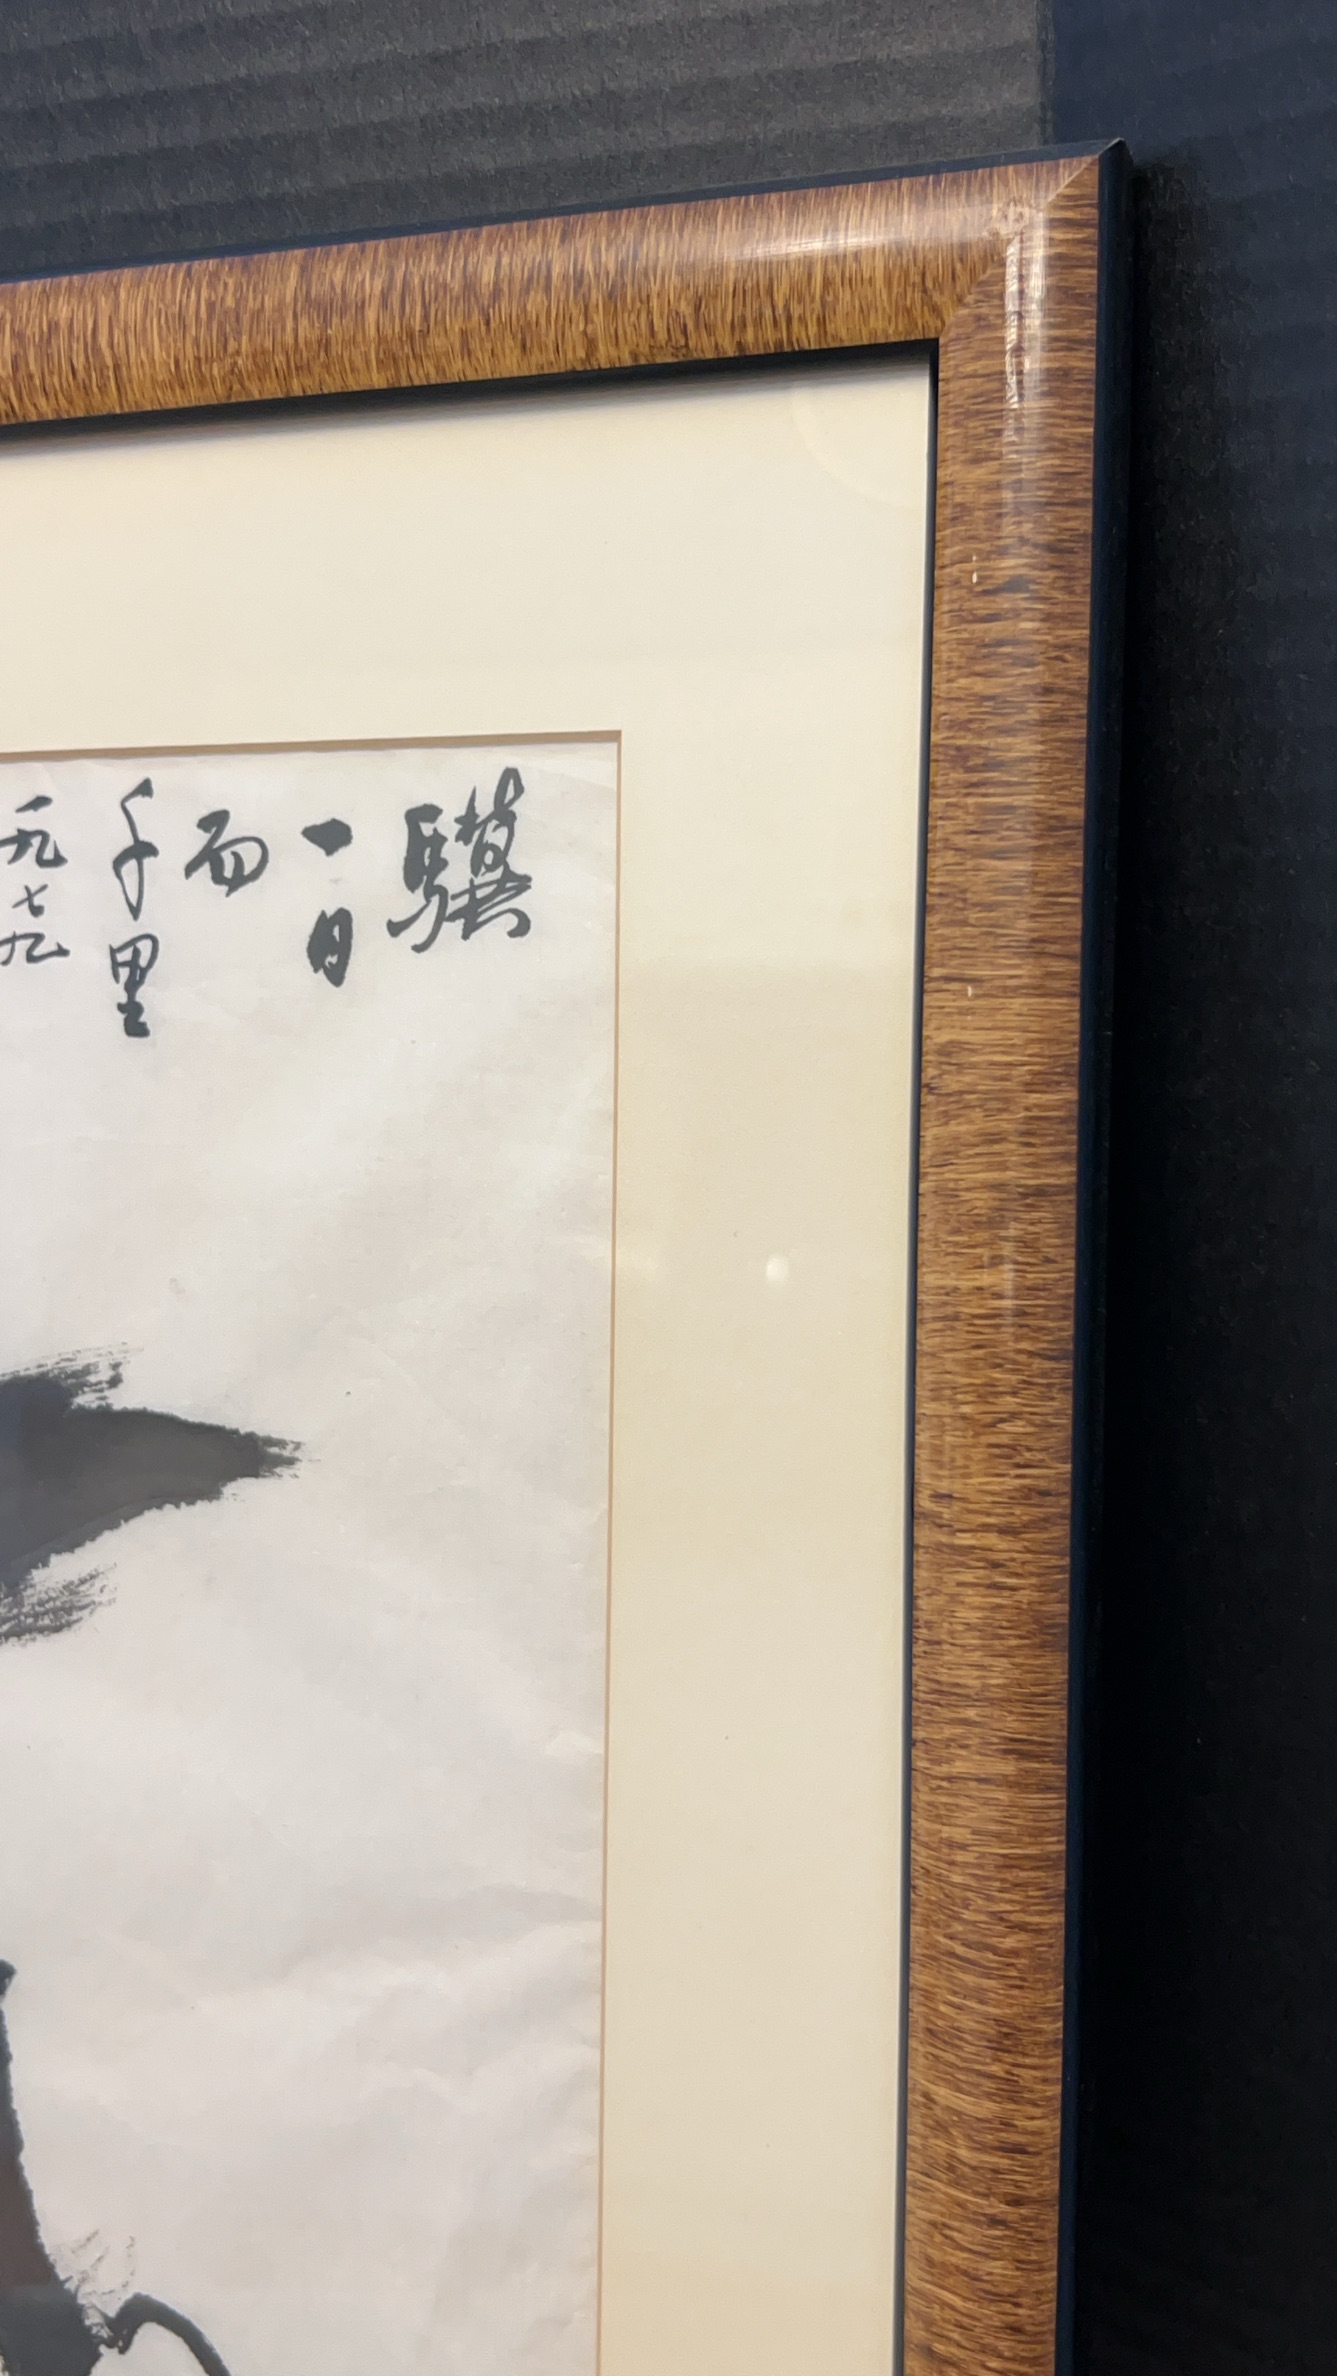 驥
一日
而
千里
一九七九